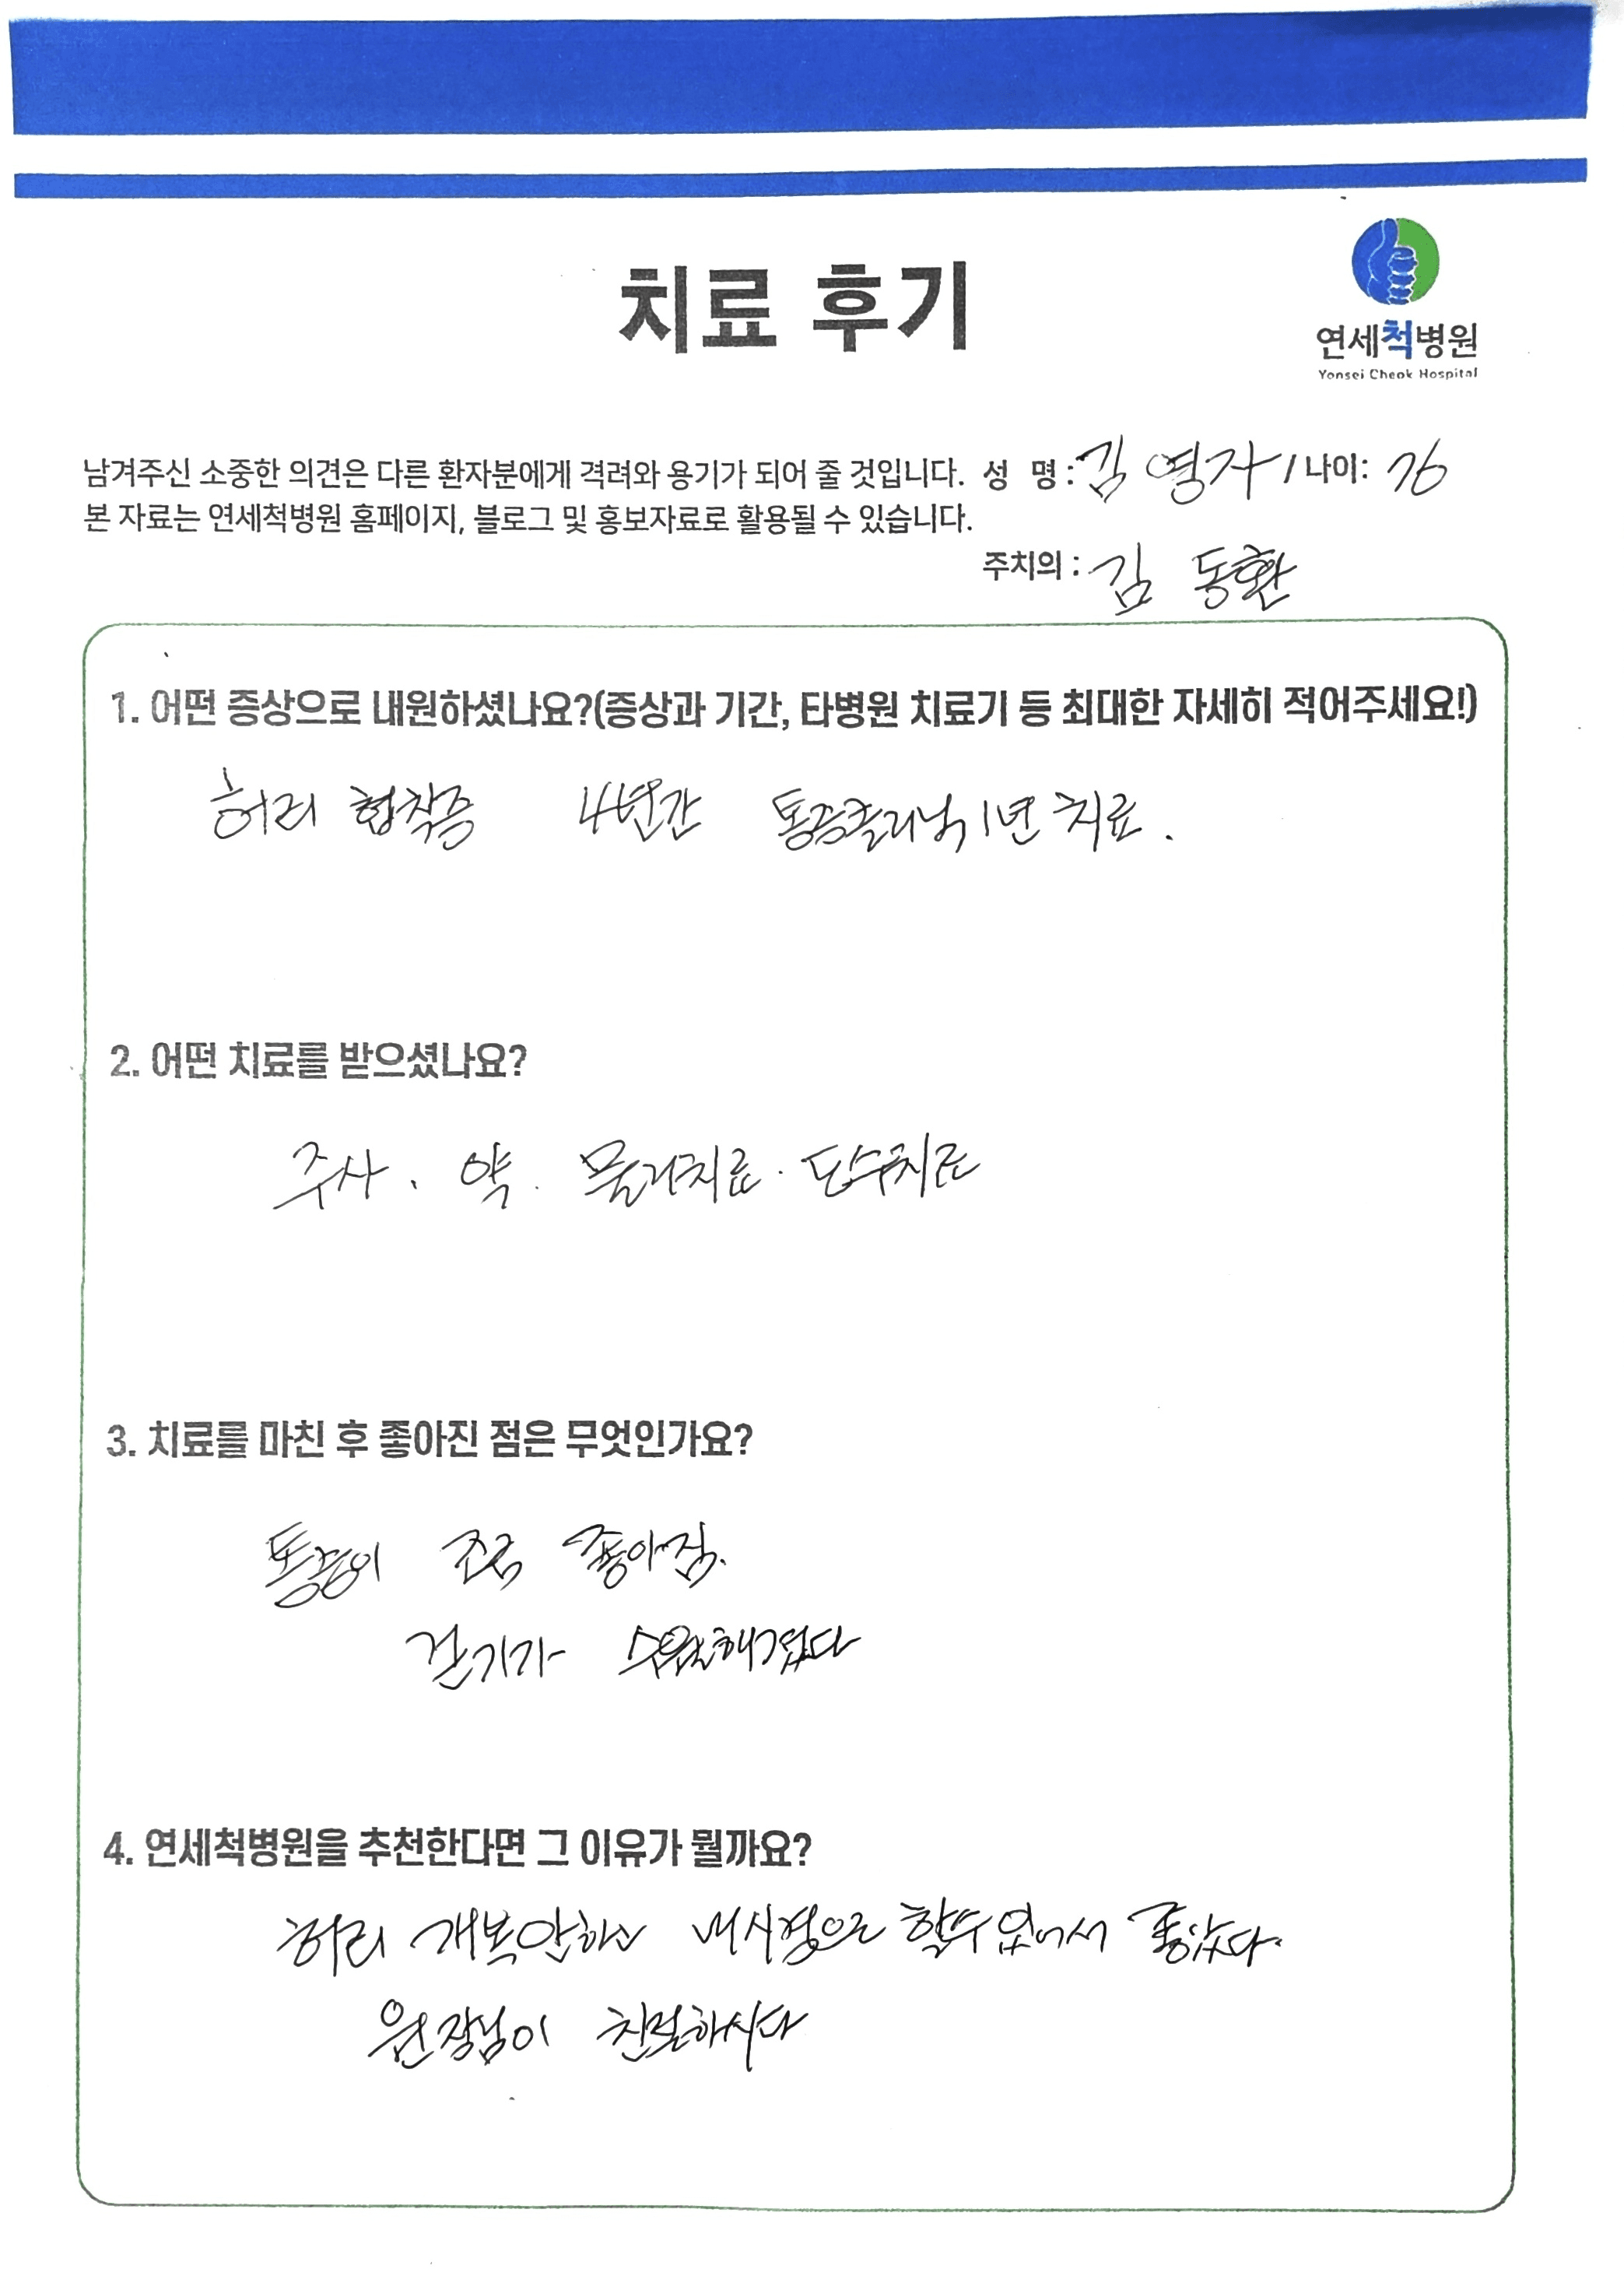 치료 후기
연세척병원
Yonsei Cheok Hospital
남겨주신 소중한 의견은 다른 환자분에게 격려와 용기가 되어 줄 것입니다. 성 명: 김영자 / 나이: 76
본 자료는 연세척병원 홈페이지, 블로그 및 홍보자료로 활용될 수 있습니다.
주치의 : 김 동환
1. 어떤 증상으로 내원하셨나요?(증상과 기간, 타병원 치료기 등 최대한 자세히 적어주세요!)
허리 협착증 4년간 통증클리닉 1년 치료.
2. 어떤 치료를 받으셨나요?
주사. 약. 물리치료. 도수치료
3. 치료를 마친 후 좋아진 점은 무엇인가요?
통증이 조금 좋아짐.
걷기가
4. 연세척병원을 추천한다면 그 이유가 뭘까요?
허리 개복안하고 내시경으로 할수있어서 좋았다.
원장님이 친절하시다